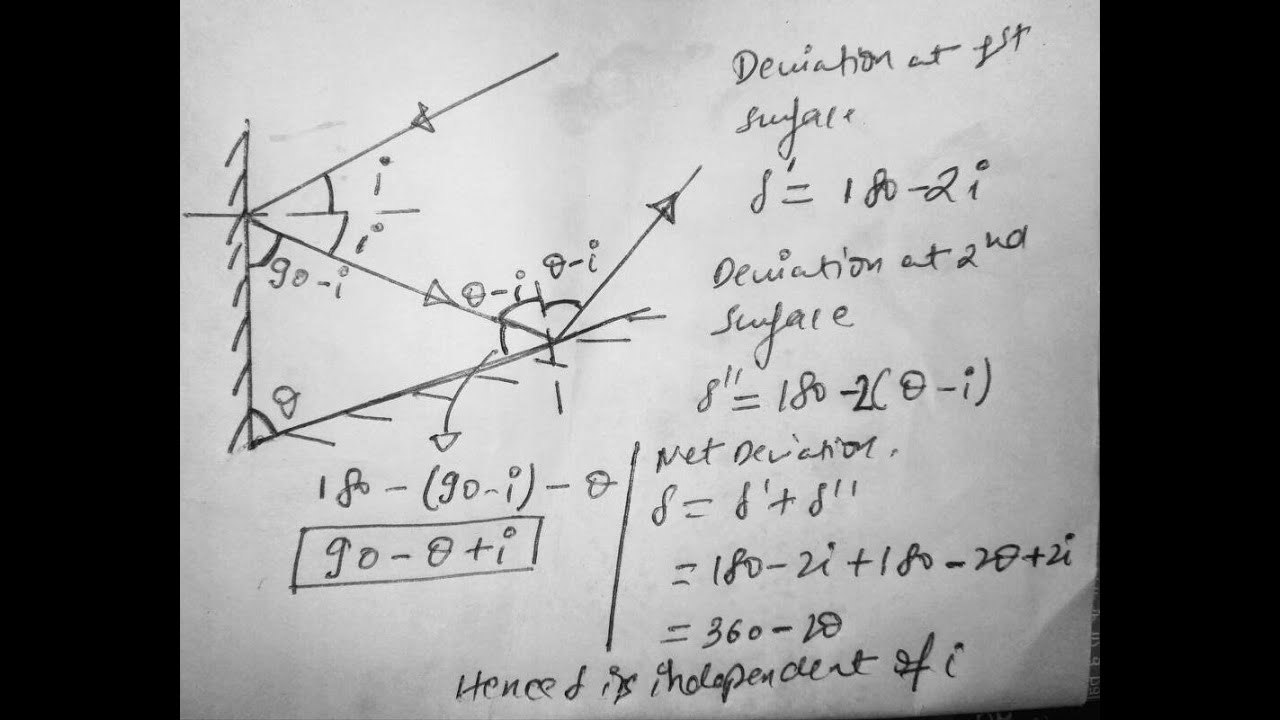 i
i
90-i
θ-i
θ-i
θ
180 - (90-i) - θ
90 - θ + i
Deviation at 1st
surface
δ' = 180 - 2i
Deviation at 2nd
surface
δ'' = 180 - 2(θ - i)
Net Deviation.
δ = δ' + δ''
= 180 - 2i + 180 - 2θ + 2i
= 360 - 2θ
Hence δ is independent of i